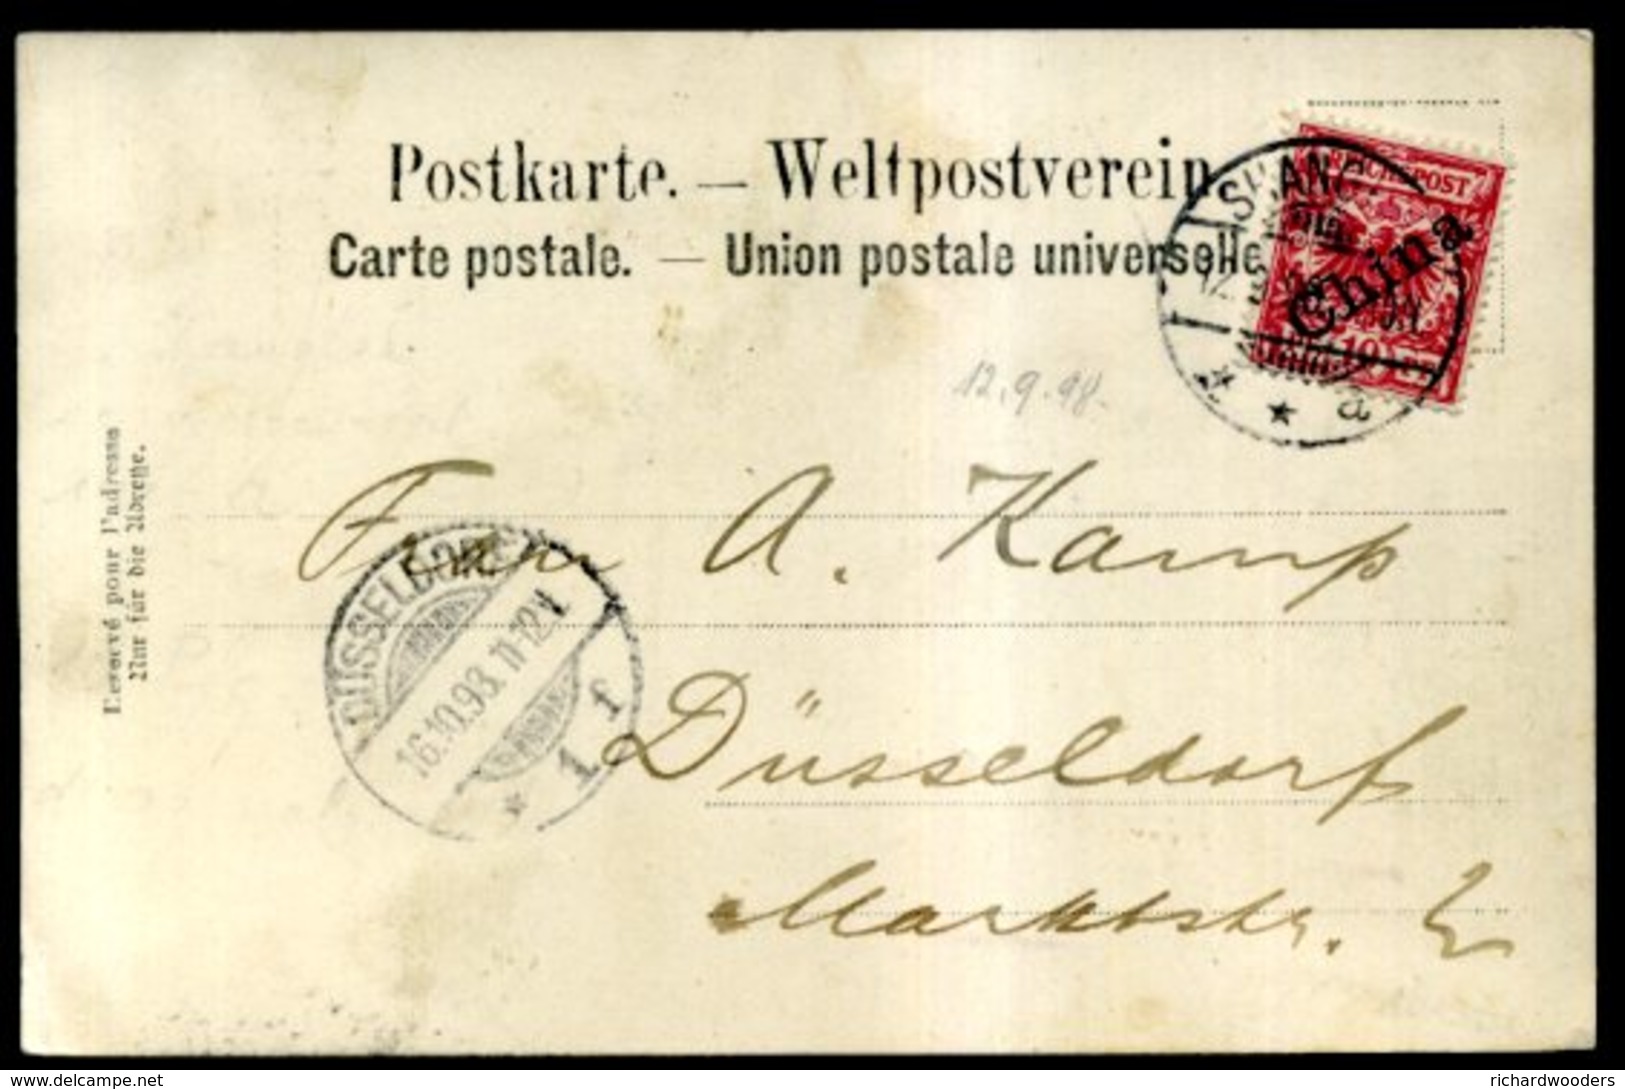 Postkarte. — Weltpostverein
Carte postale. — Union postale universelle
REICHSPOST
China
10
SHANG
12 9 98
a
12.9.98.
Réservé pour l'adresse
Nur für die Adresse.
A. Kamp
DÜSSELDORF
16.10.98. 11-12V.
* 1 f
Düsseldorf
Marktstr.
www.delcampe.net
richardwooders